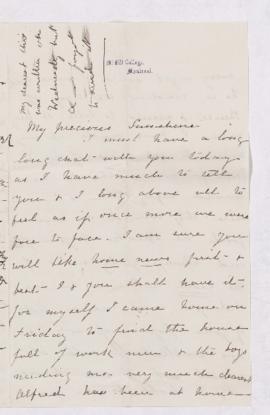 My dearest this
was written on
Wednesday but
I forgot
to
McGill College,
Montreal.
My precious Sunshine.
I must have a long
long chat with you today
as I have much to tell
you & I long above all to
feel as if once more we were
face to face. I am sure you
will like home news first &
best - & you shall have it -
for myself I came home on
Friday to find the house
full of work men & the boys
needing me very much dearest
Alfred has been at home